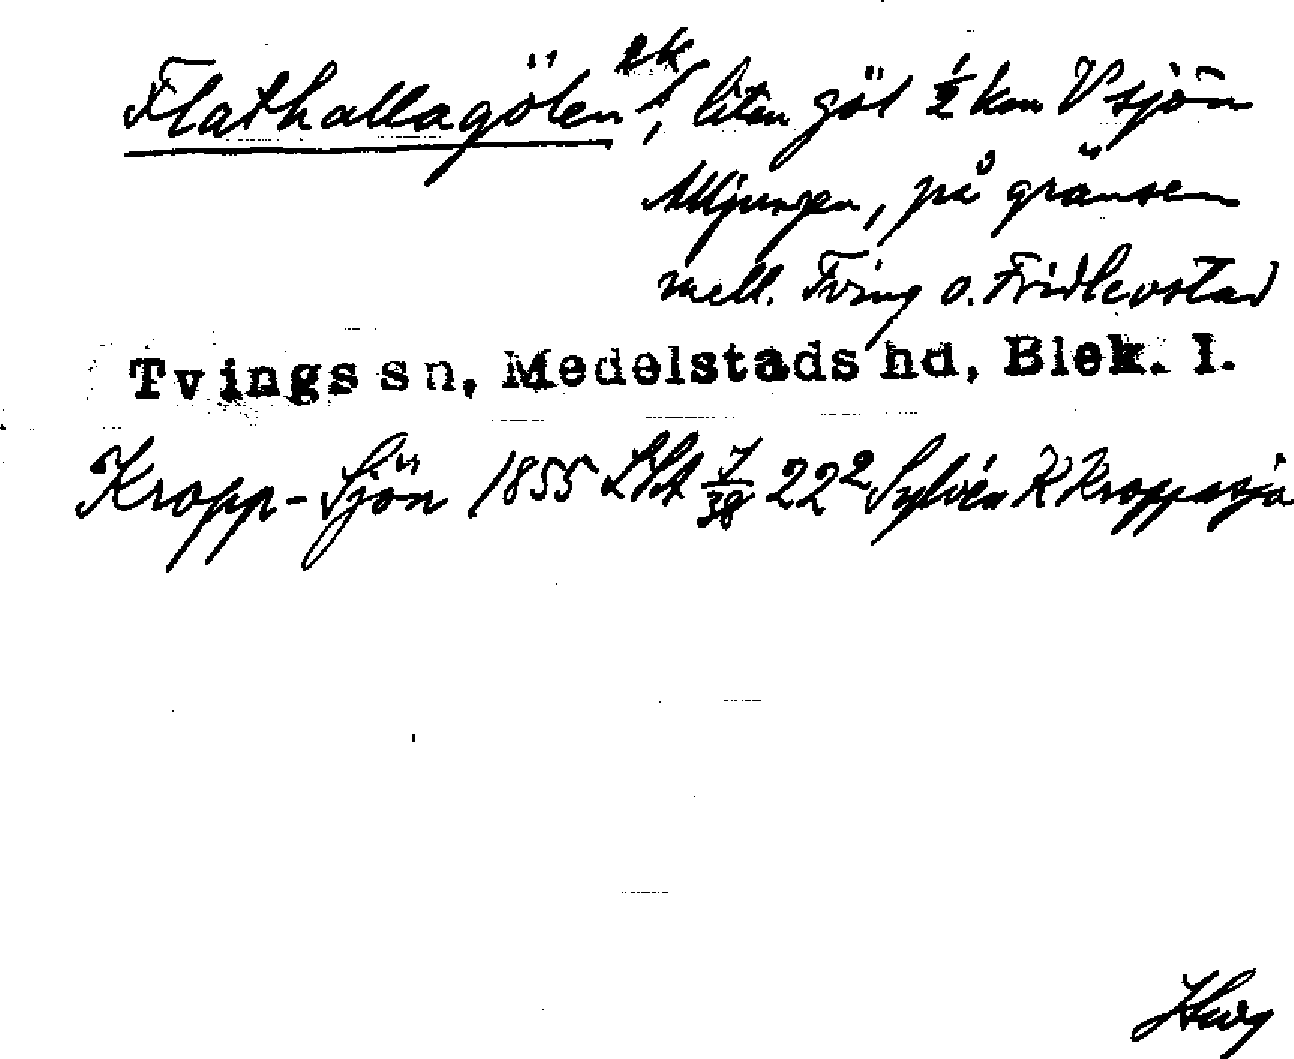 Flathallagölen ek f, liten göl ½ km V sjön
Alljungen, på gränsen
mell. Tving o. Fridlevstad
Tvings sn, Medelstads hd, Blek. l.
Kropp-Sjön 1855 LSA 7/38 22² Sylvén K Kroppasjö